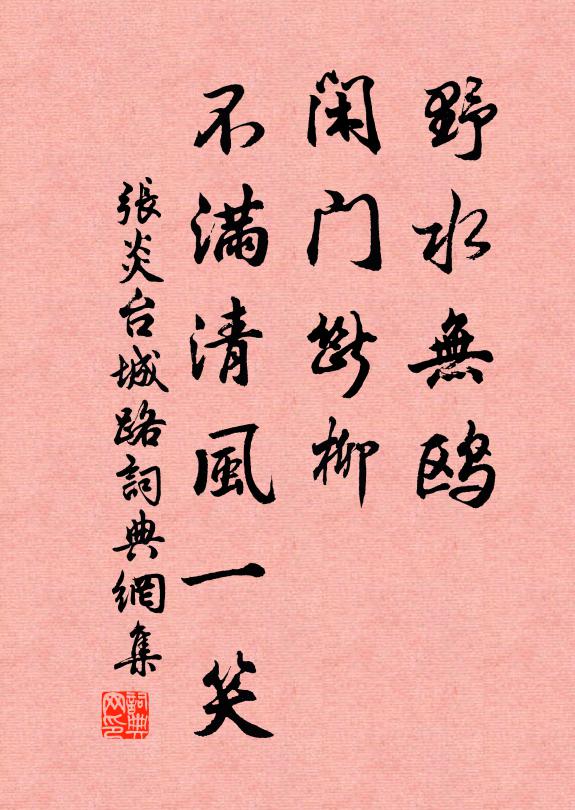 野水無鷗
閑门斷柳
不满清風一笑
張炎台城路詞典網集
詞典网印